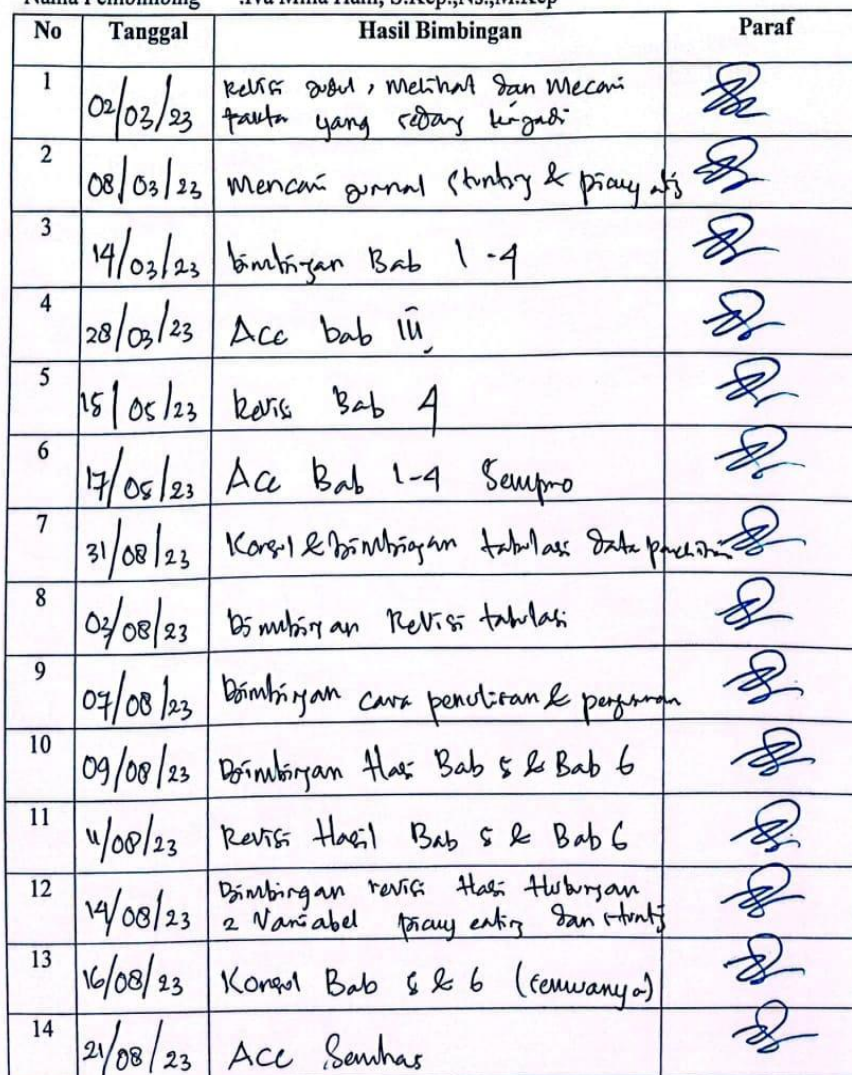 Nama Pembimbing :Iva Milia Hani, S.Kep.,Ns.,M.Kep
No Tanggal Hasil Bimbingan Paraf
1 02/03/23 Revisi judul, melihat dan mecari
yang sedang terjadi
2 08/03/23 Mencari jurnal stunting & picky
3 14/03/23 bimbingan Bab 1-4
4 28/03/23 Acc bab III
5 15/05/23 Revisi Bab 4
6 17/05/23 Acc Bab 1-4 Sempro
7 31/08/23 Konsul & bimbingan tabulasi data penelitian
8 03/08/23 Bimbingan Revisi tabulasi
9 07/08/23 Bimbingan cara penulisan &
10 09/08/23 Bimbingan Hasil Bab 5 & Bab 6
11 11/08/23 Revisi Hasil Bab 5 & Bab 6
12 14/08/23 Bimbingan revisi Hasil Hubungan
2 Variabel picky eating dan stunting
13 16/08/23 Konsul Bab 5 & 6 (semuanya)
14 21/08/23 Acc Semhas